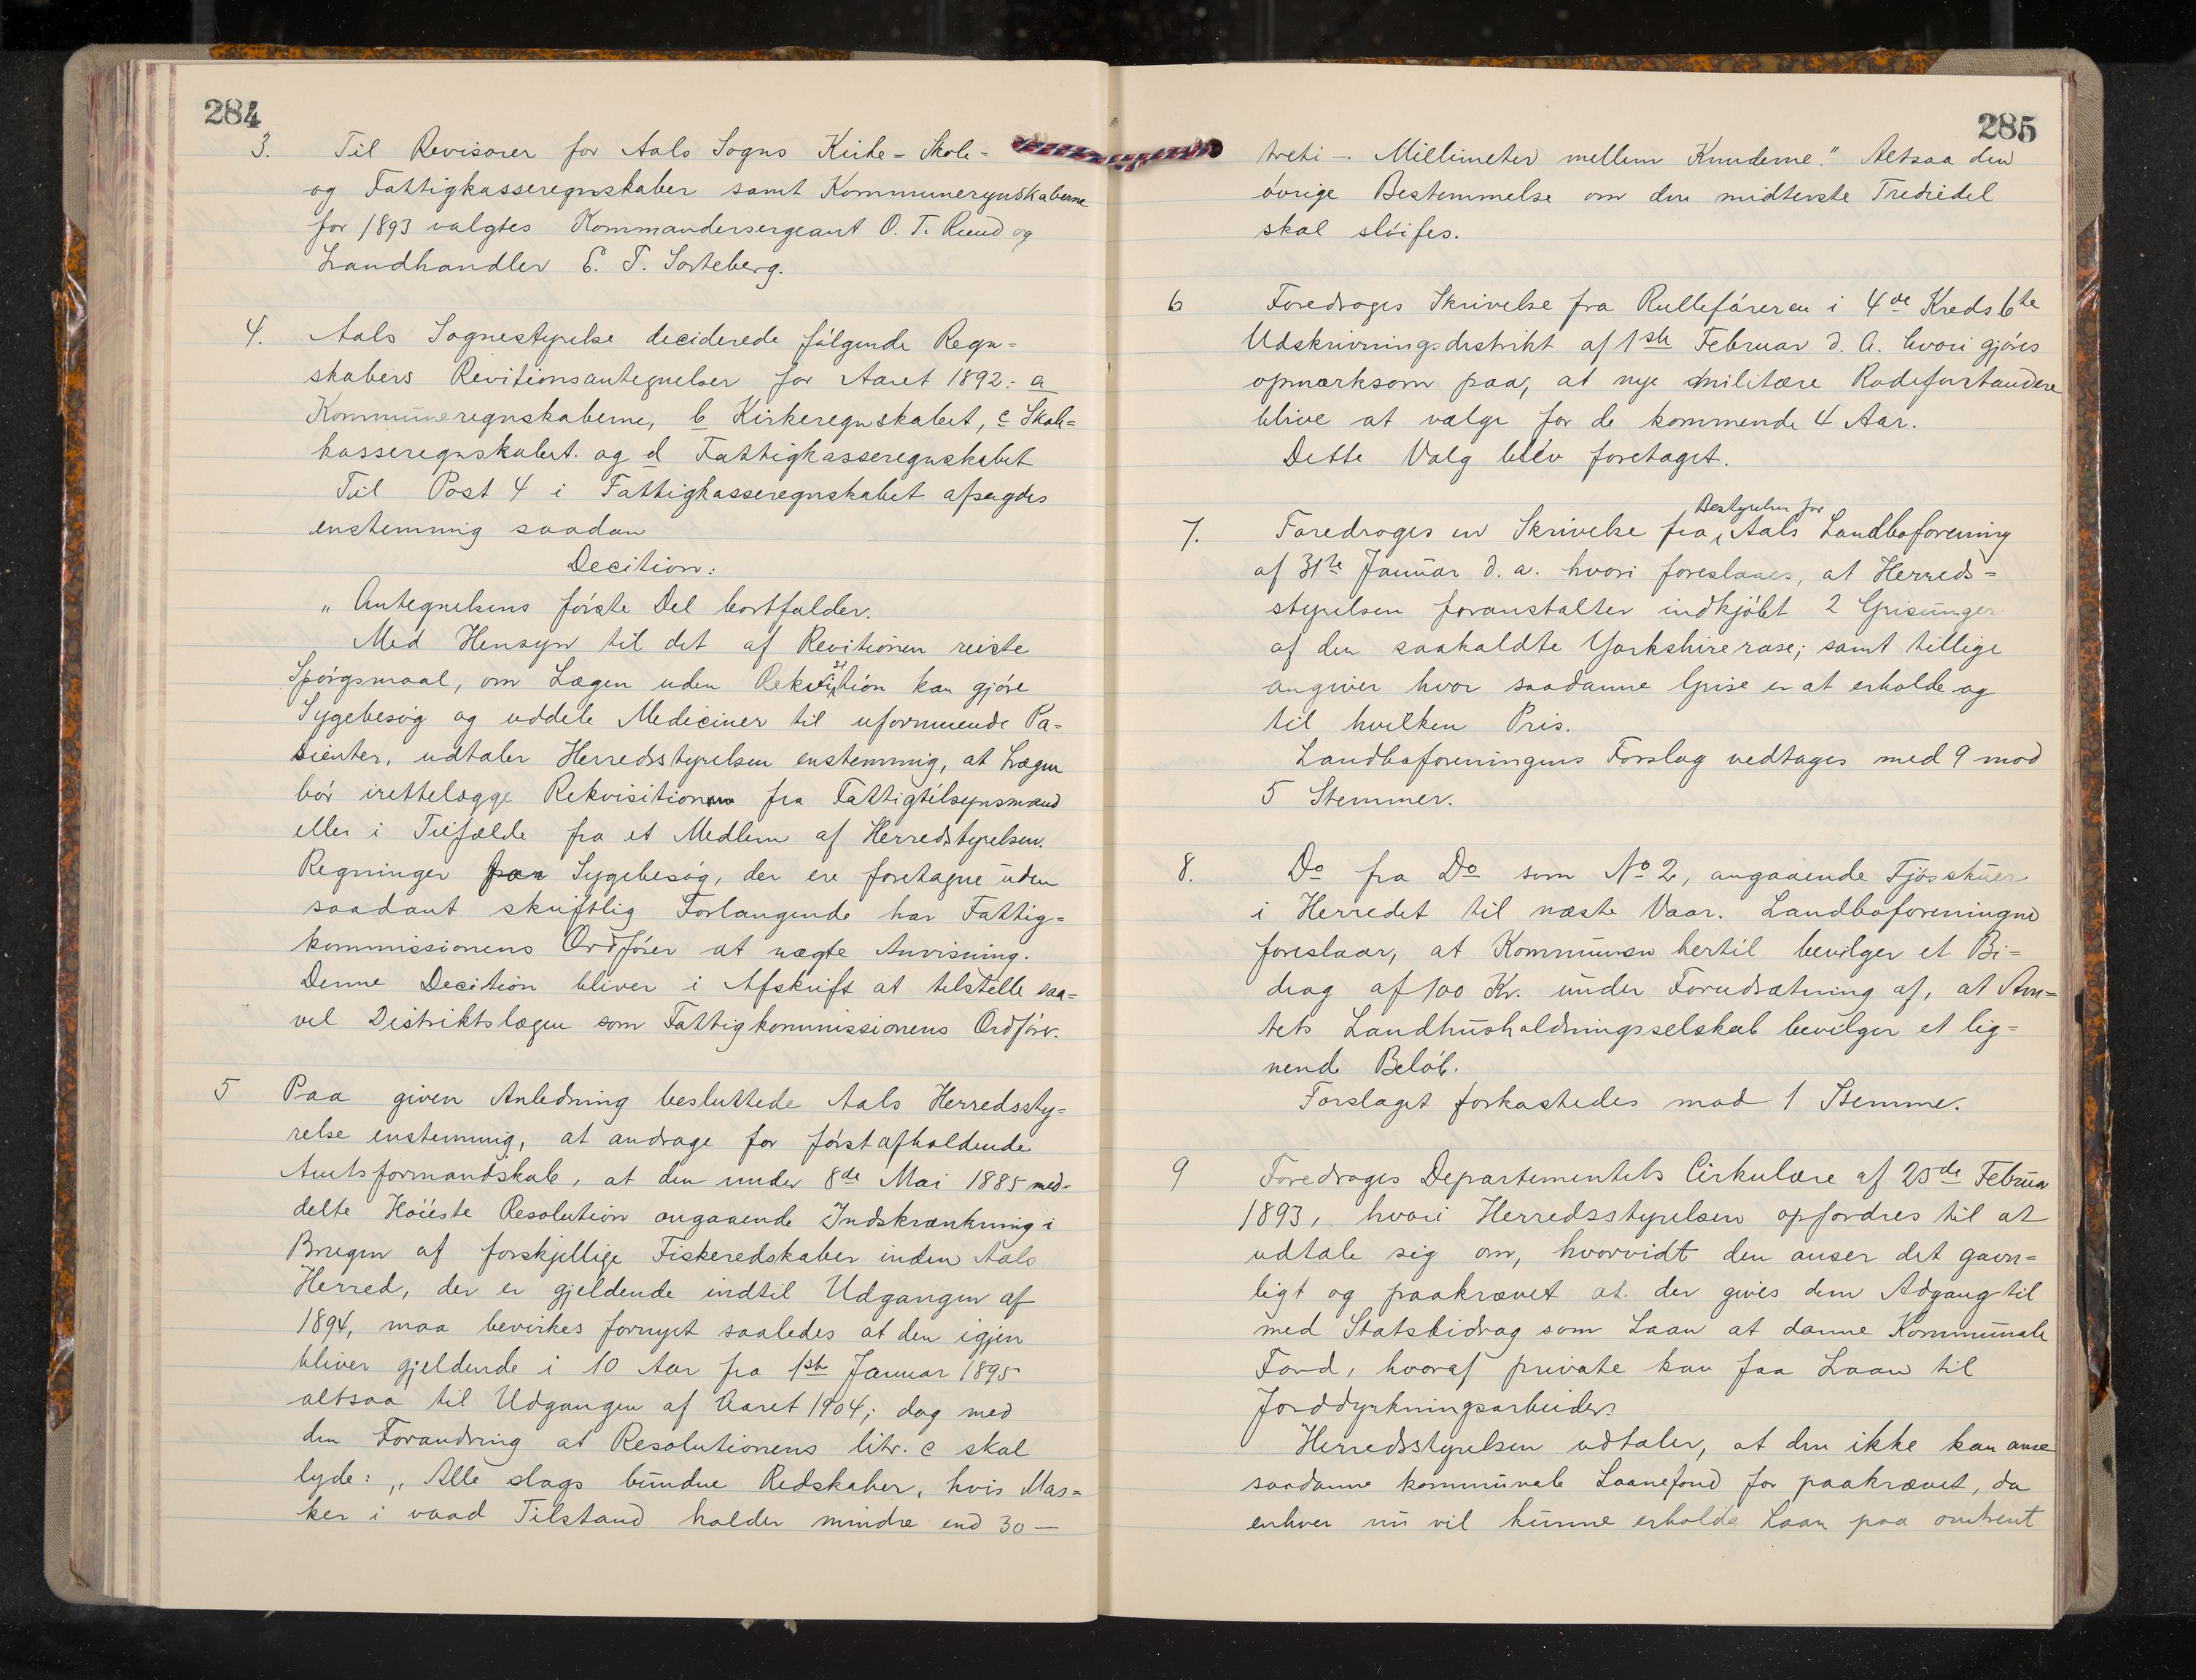 284
3. Til Revisorer for Aals Sogns Kirke- Skole-
og Fattigkasseregnskaber samt Kommuneregnskaberne
for 1893 valgtes Kommandersergeant O. T. Ruud og
Landhandler E. T. Sorteberg.
4. Aals Sognestyrelse deciderede følgende Regn-
skabers Revitionsantegnelser for Aaret 1892: a
Kommuneregnskaberne, b Kirkeregnskabet, c Skole-
kasseregnskabet. og d Fattigkasseregnskabet
Til Post 4 i Fattigkasseregnskabet afsagdes
enstemmig saadan
Decition:
„Antegnelsens første Del bortfalder.
Med Hensyn til det af Revitionen reiste
Spørgsmaal, om Lægen uden Rekvisition kan gjøre
Sygebesøg og uddele Mediciner til uformuende Pa-
sienter, udtaler Herredsstyrelsen enstemmig, at Lægen
bør irettelægge Rekvisition fra Fattigtilsynsmand
eller i Tilfælde fra et Medlem af Herredsstyrelsen.
Regninger paa Sygebesøg, der ere foretagne uden
saadant skriftlig Forlangende har Fattig-
kommissionens Ordfører at nægte Anvisning.
Denne Decition bliver i Afskrift at tilstille saa-
vel Distriktslægen som Fattigkommissionens Ordfører.
5 Paa given Anledning besluttede Aals Herredssty-
relse enstemmig, at andrage for førstafholdende
Amtsformandskab, at den under 8de Mai 1885 med-
delte Høieste Resolution angaaende Indskrænkning i
Brugen af forskjellige Fiskeredskaber inden Aals
Herred, der er gjeldende indtil Udgangen af
1894, maa bevirkes fornyet saaledes at den igjen
bliver gjeldende i 10 Aar fra 1ste Januar 1895
altsaa til Udgangen af Aaret 1904; dog med
den Forandring at Resolutionens litr. c skal
lyde: „Alle slags bundne Redskaber, hvis Mas-
ker i vaad Tilstand holder mindre end 30 —
285
treti — Millimeter mellem Knuderne." Altsaa den
øvrige Bestemmelse om den midterste Trediedel
skal sløifes.
6 Foredroges Skrivelse fra Rulleføreren i 4de Kreds 6te
Udskrivningsdistrikt af 1ste Februar d. A. hvori gjøres
opmærksom paa, at nye militære Rodeforstandere
blive at vælge for de kommende 4 Aar.
Dette Valg blev foretaget.
7. Foredroges en Skrivelse fra Bestyrelsen for Aals Landboforening
af 31te Januar d. a. hvori foreslaaes, at Herreds-
styrelsen foranstalter indkjøbt 2 Grisunger
af den saakaldte Yorkshirerase; samt tillige
angiver hvor saadanne Grise er at erholde og
til hvilken Pris.
Landboforeningens Forslag vedtages med 9 mod
5 Stemmer.
8. Do fra Do som No 2, angaaende Fjøsskuer
i Herredet til næste Vaar. Landboforeningen
foreslaar, at Kommunen hertil bevilger et Bi-
drag af 100 Kr. under Forudsætning af, at Am-
tets Landhusholdningsselskab bevilger et lig-
nende Beløb.
Forslaget forkastedes mod 1 Stemme.
9 Foredroges Departementets Cirkulære af 25de Februar
1893, hvori Herredsstyrelsen opfordres til at
udtale sig om, hvorvidt den anser det gavn-
ligt og paakrævet at der gives dem Adgang til
med Statsbidrag som Laan at danne Kommunale
Fond, hvoraf private kan faa Laan til
Jorddyrkningsarbeider.
Herredsstyrelsen udtaler, at den ikke kan anse
saadanne kommunale Laanefond for paakrævet, da
enhver nu vil kunne erholde Laan paa omtrent